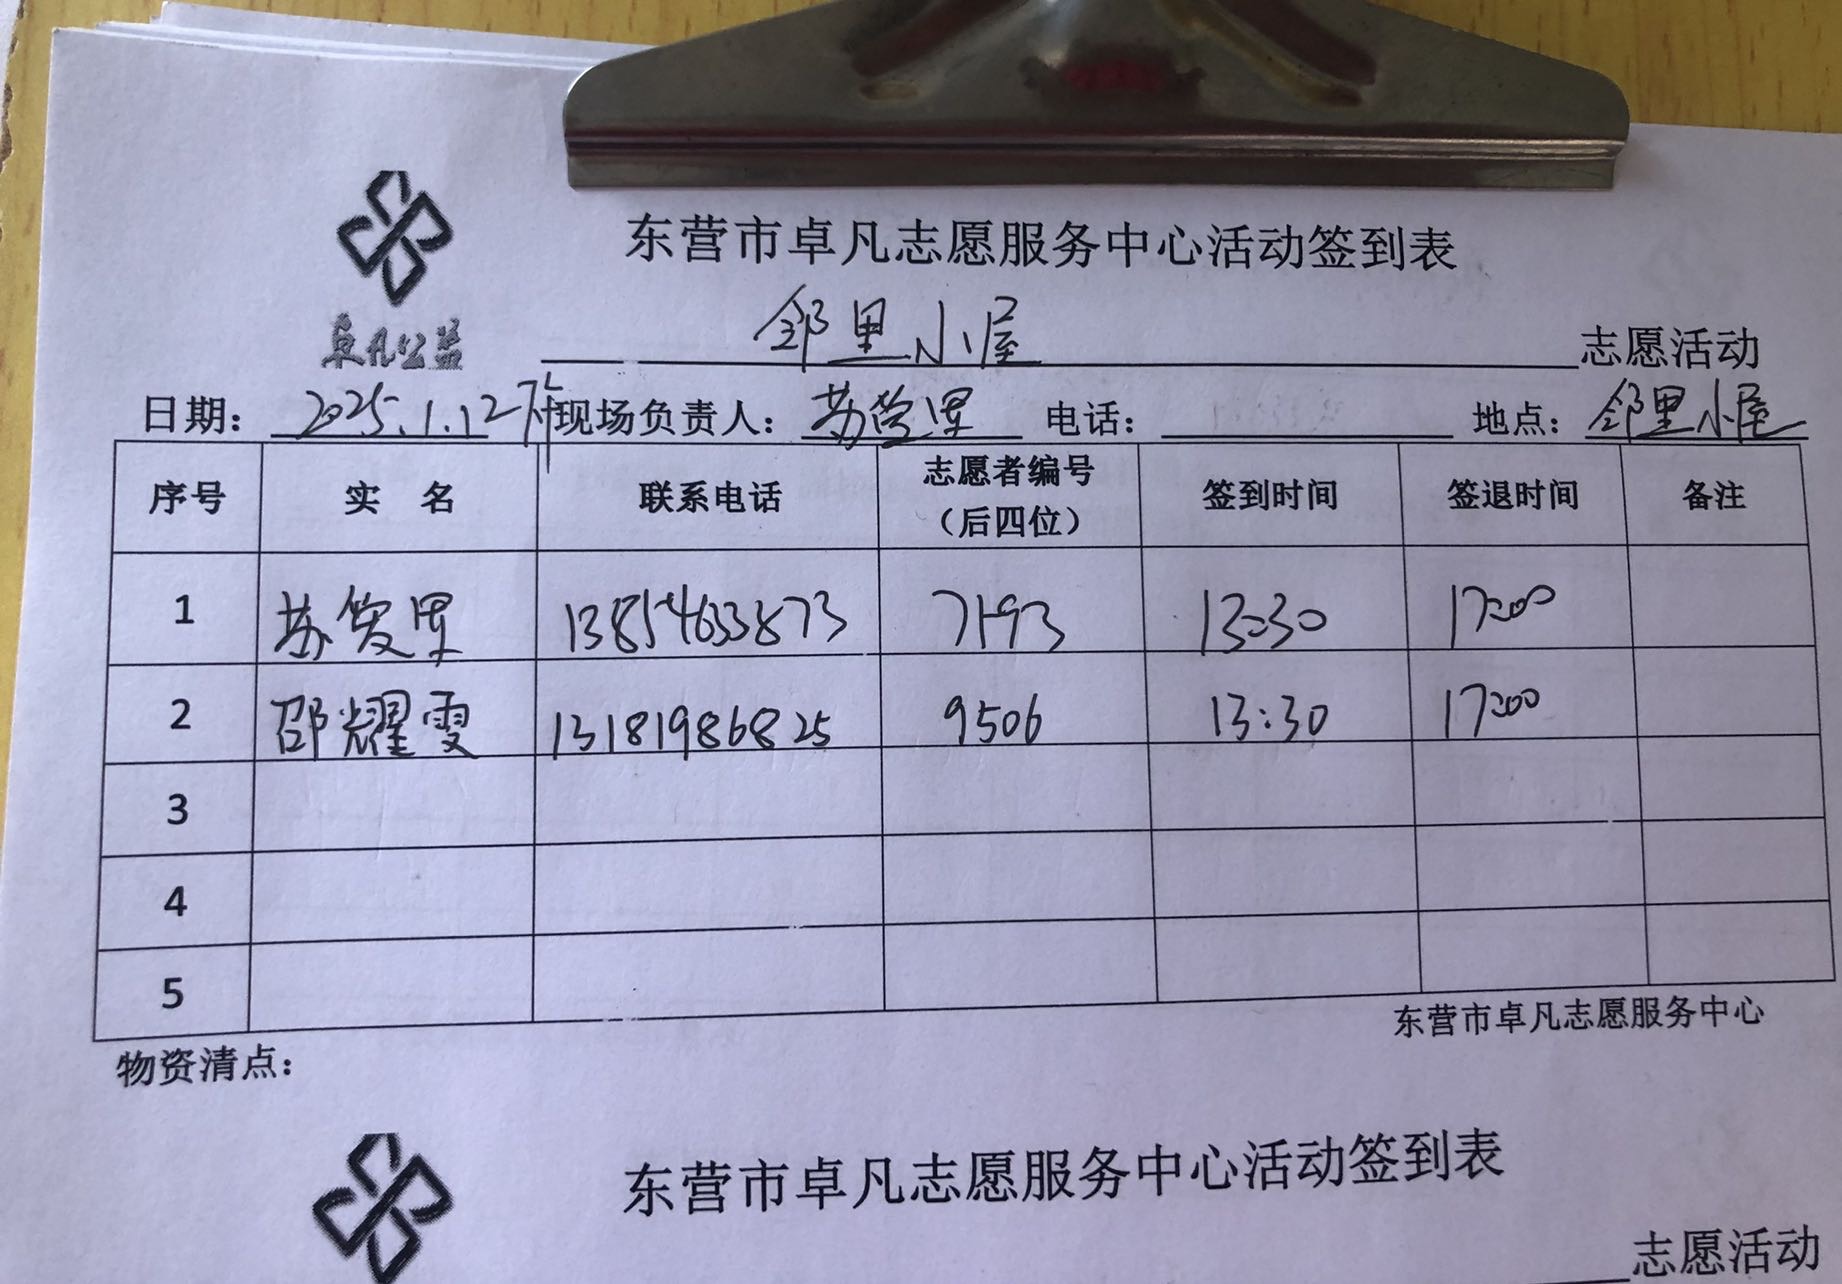 东营市卓凡志愿服务中心活动签到表
卓凡公益
邻里小屋 志愿活动
日期: 2025.1.12下午 现场负责人: 苏 电话: 地点: 邻里小屋
序号 实 名 联系电话 志愿者编号(后四位) 签到时间 签退时间 备注
1 苏 13854633873 7193 13:30 17:00
2 邵耀雯 13181986825 9506 13:30 17:00
3
4
5
东营市卓凡志愿服务中心
物资清点:
东营市卓凡志愿服务中心活动签到表
志愿活动